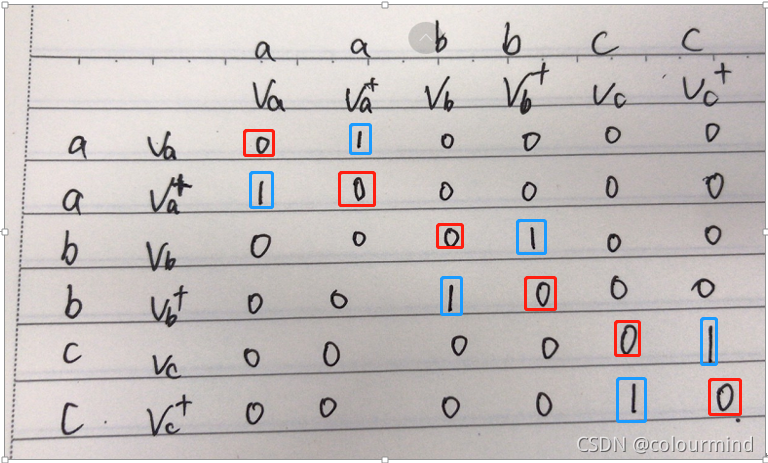 a a b b c c
Va Va+ Vb Vb+ Vc Vc+
a Va 0 1 0 0 0 0
a Va+ 1 0 0 0 0 0
b Vb 0 0 0 1 0 0
b Vb+ 0 0 1 0 0 0
c Vc 0 0 0 0 0 1
c Vc+ 0 0 0 0 1 0
CSDN @colourmind